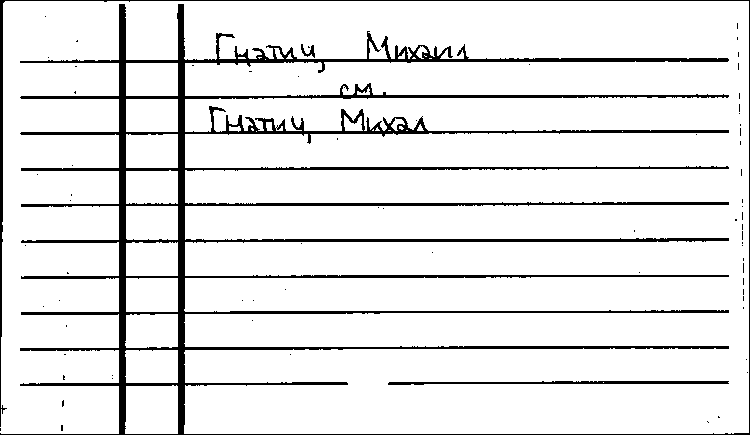 Гнатич, Михаил
см.
Гнатич, Михал